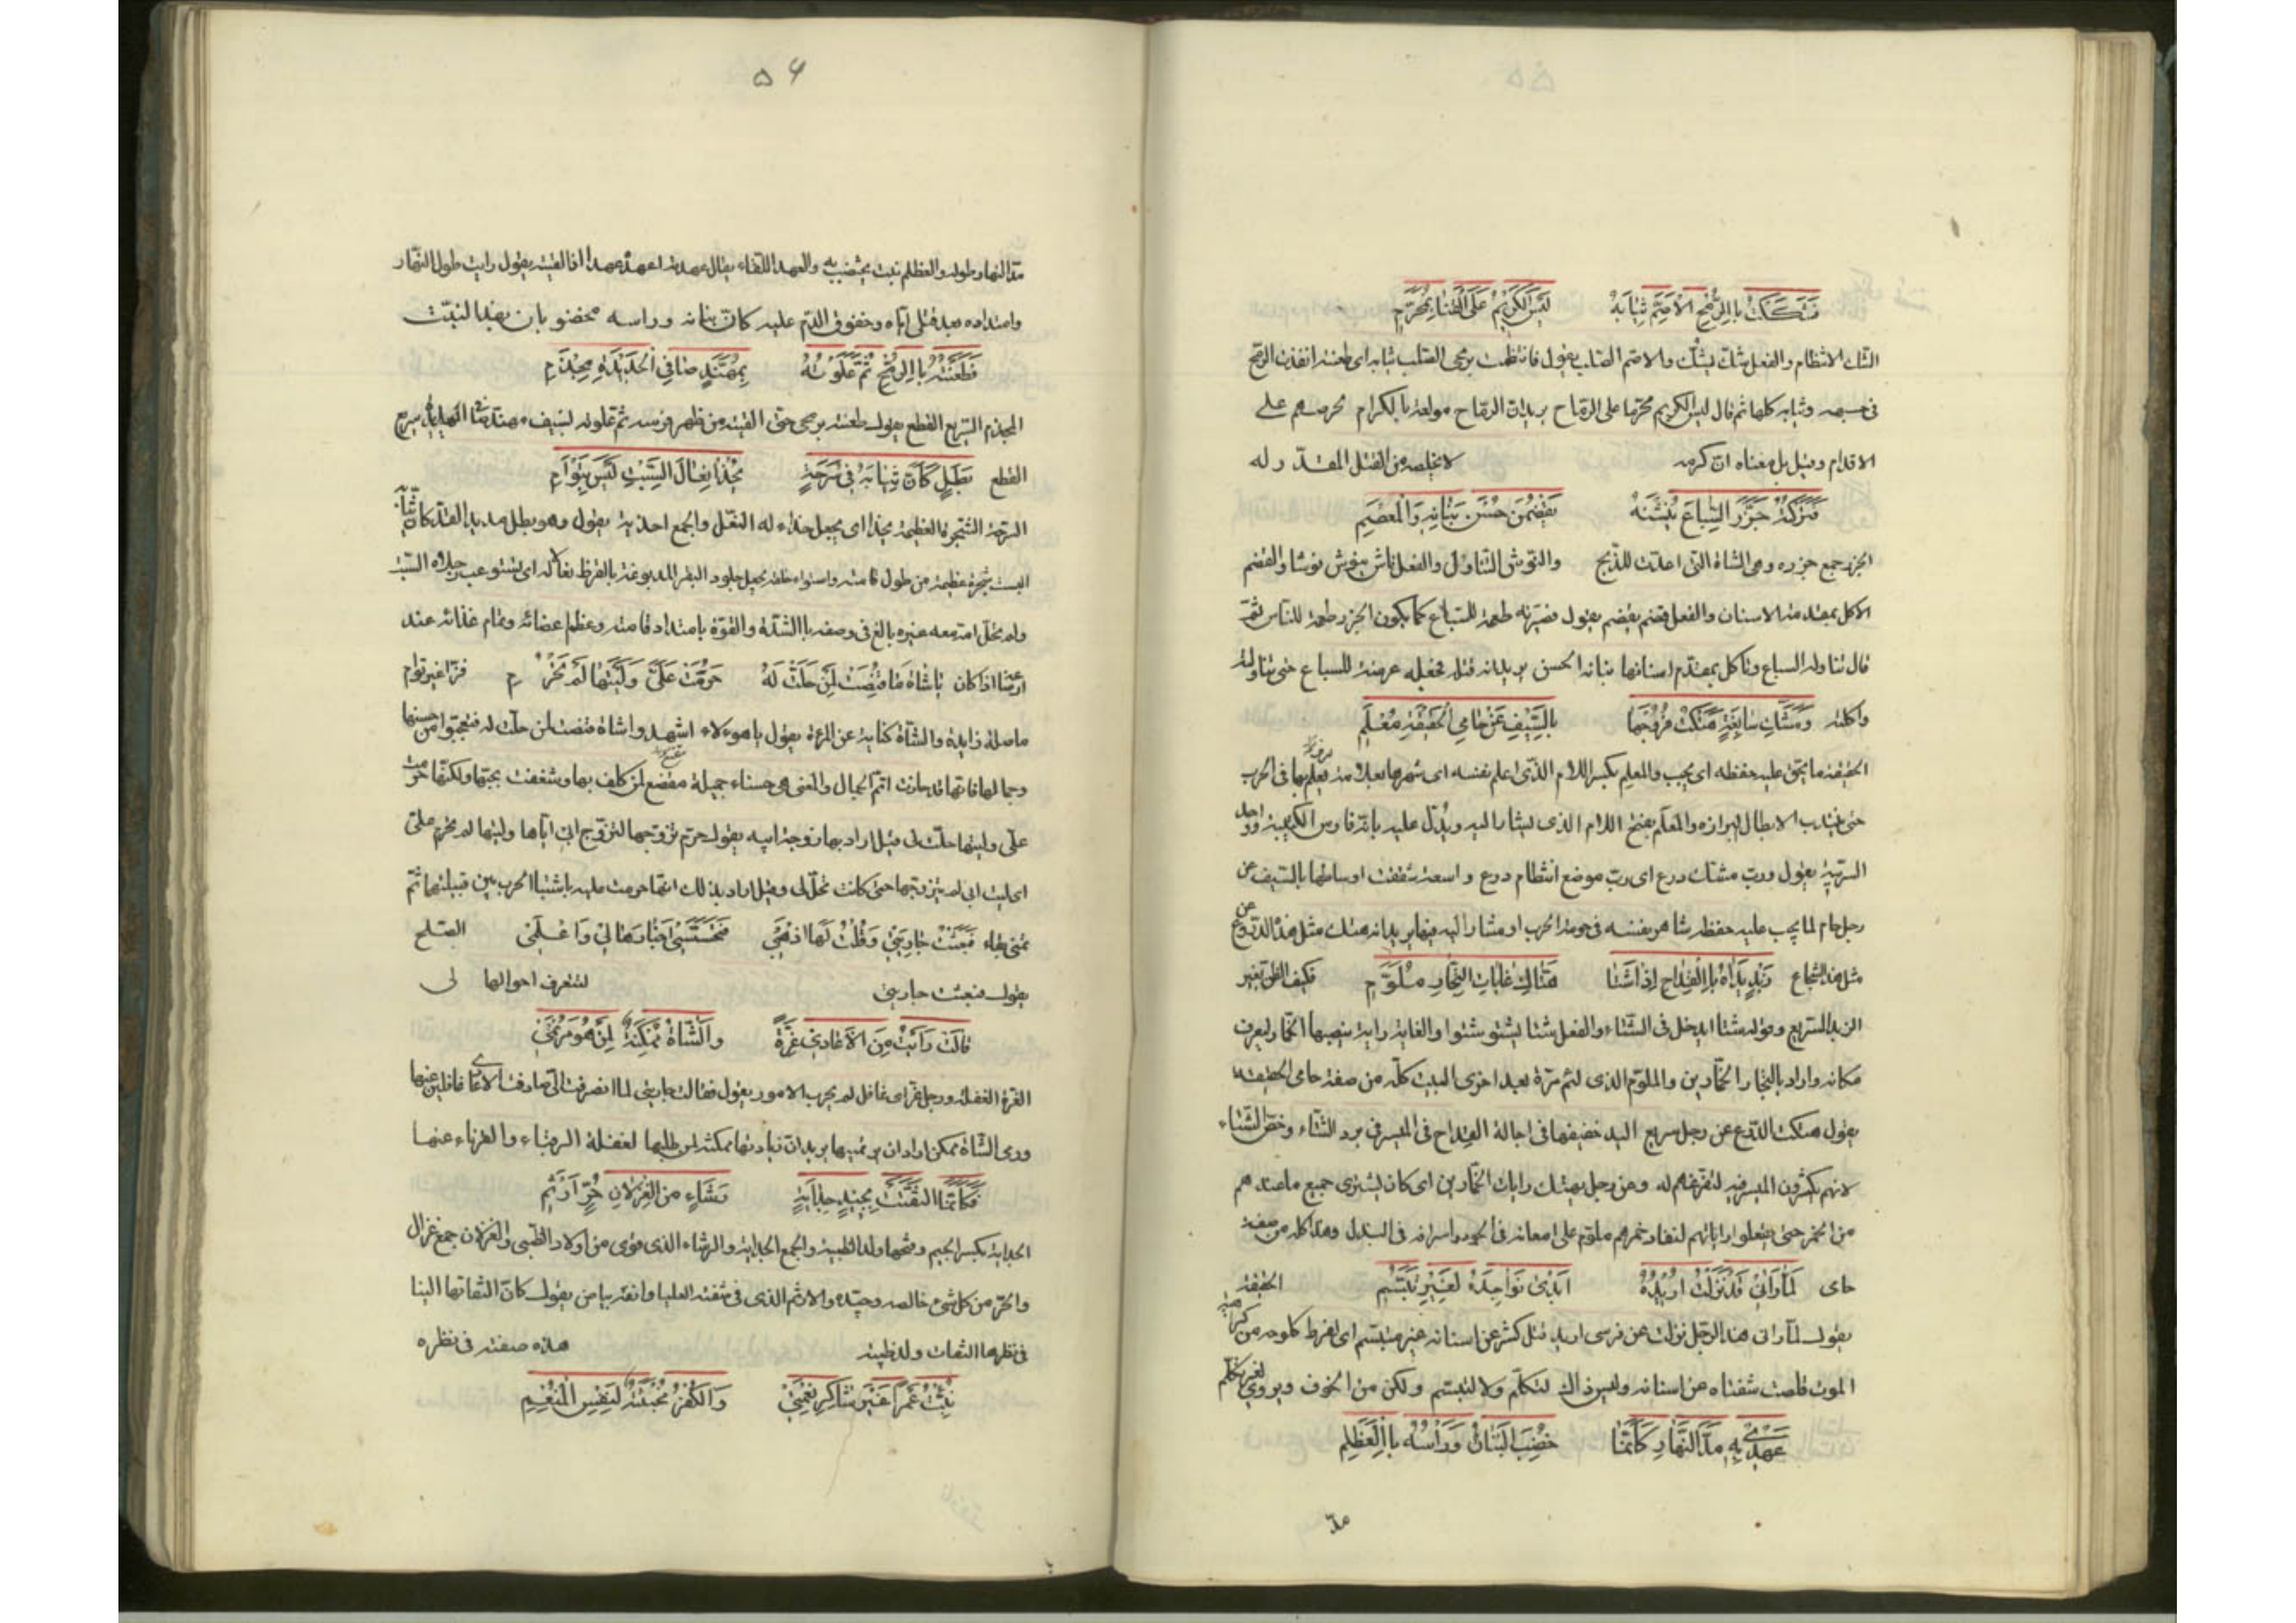 فَشَكَكْتُ بِالرُّمْحِ الأَصَمِّ ثِيَابَهُ لَيْسَ الكَرِيمُ عَلَى القَنَا بِمُحَرَّمِ
الشك الانتظام والفعل شك يشك والاصم الصلب يقول فانتظمت برمحى الصلب ثيابه اى طعنته انفذت الرمح
فى جسمه وثيابه كلها ثم قال ليس الكريم محرما على الرماح يريد ان الرماح مولعة بالكرام لحرصهم على
الاقدام وقيل بل معناه ان كرمه لا يخلصه من القتل المقدّر له
فَتَرَكْتُهُ جَزَرَ السِّبَاعِ يَنُشْنَهُ يَقْضِمْنَ حُسْنَ بَنَانِهِ وَالْمِعْصَمِ
الجزر جمع جزره وهى الشاة التى اعدت للذبح والنوش التناول والفعل ناش ينوش نوشا والقضم
الاكل بمقدم الاسنان والفعل قضم يقضم يقول فصيرته طعمة للسباع كما يكون الجزر طعمة للناس ثم
قال تناوله السباع وتاكل بمقدم اسنانها بنانه الحسن يريد انه قتله فجعله عرضة للسباع حتى تناولته
واكلته وَمِشَكِّ سَابِغَةٍ هَتَكْتُ فُرُوجَهَا بِالسَّيْفِ عَنْ حَامِي الْحَقِيقَةِ مُعْلِمِ
الحقيقة ما يحق عليه حفظه اى يجب والمعلم بكسر اللام الذى اعلم نفسه اى شهرها بعلامة يعلم بها فى الحرب
حتى ينتدب الابطال لبرازه والمعلم بفتح اللام الذى يشار اليه ويدل عليه بانه فارس الكتيبة وواحد
السرية يقول ورب مشك درع اى رب موضع انتظام درع واسعة شققت اوساطها بالسيف عن
رجل حام لما يجب عليه حفظه شاهر نفسه فى حومة الحرب او مشار اليه فيها يريد انه هتك مثل هذه الدروع عن
مثل هذا الشجاع رَبِذٍ يَدَاهُ بِالْقِدَاحِ إِذَا شَتَا هَتَّاكِ غَايَاتِ التِّجَارِ مُلَوَّمِ فكيف الظن بغير
الربذ السريع وقوله شتا اى دخل فى الشتاء والفعل شتا يشتو شتوا والغاية راية ينصبها الخمار ليعرف
مكانه واراد بالتجار الخمارين والملوم الذى ليم مرة بعد اخرى البيت كله من صفة حامى الحقيقة
يقول هتكت الدرع عن رجل سريع اليد خفيفها فى اجالة القداح فى الميسر فى برد الشتاء وخص الشتاء
لانهم يكثرون الميسر فيه لتفرغهم له وعن رجل يهتك رايات الخمارين اى كان يشترى جميع ما عندهم
من الخمر حتى يقلعوا راياتهم لنفاد خمرهم ملوم على امعانه فى الجود واسرافه فى البذل وهذا كله من صفة
حامى لَمَّا رَآنِي قَدْ نَزَلْتُ أُرِيدُهُ أَبْدَى نَوَاجِذَهُ لِغَيْرِ تَبَسُّمِ الحقيقة
يقول لما رآنى هذا الرجل نزلت عن فرسى اريد قتله كشر عن اسنانه غير متبسم اى لفرط كلوحه من كراهية
الموت قلصت شفتاه عن اسنانه وليس ذاك لتكلم ولا لتبسم ولكن من الخوف ويروى لغير تكلم
عَهْدِي بِهِ مَدَّ النَّهَارِ كَأَنَّمَا خُضِبَ الْبَنَانُ وَرَأْسُهُ بِالْعِظْلِمِ
مدّ
۵۶
مدّ النهار طوله والعظلم نبت يختضب به والعهد اللقاء يقال عهدته اعهده عهدا اذا لقيته يقول رايت طول النهار
وامتداده بعد قتلى اياه وجفوف الدم عليه كان بنانه وراسه مخضوبان بهذا النبت
فَطَعَنْتُهُ بِالرُّمْحِ ثُمَّ عَلَوْتُهُ بِمُهَنَّدٍ صَافِي الْحَدِيدَةِ مِجْذَمِ
المجذم السريع القطع يقول طعنته برمحى حتى القيته من ظهر فرسه ثم علوته بسيف مهند صافى الحديد سريع
القطع بَطَلٍ كَأَنَّ ثِيَابَهُ فِي سَرْحَةٍ يُحْذَى نِعَالَ السِّبْتِ لَيْسَ بِتَوْأَمِ
السرحة الشجرة العظيمة يحذا اى يجعل حذاء له النعل والجمع احذية يقول وهو بطل مديد القد كان ثيابه
البست شجرة عظيمة من طول قامته واستواء خلقه يجعل جلود البقر المدبوغة بالقرظ نعاله اى يستوعب رجلاه السبت
ولم تحمل امه معه غيره بالغ فى وصفه بالشدة والقوة بامتداد قامته وعظم اعضائه وتمام غذائه عند
ارضاعه اذ كان يَا شَاةَ مَا قَنَصٍ لِمَنْ حَلَّتْ لَهُ حَرُمَتْ عَلَيَّ وَلَيْتَهَا لَمْ تَحْرُمِ فردا غير توام
ما صلة زايدة والشاة كناية عن المرءة يقول يا هوءلاء اشهدوا شاة قنص لمن حلت له فتعجبوا من حسنها
وجمالها فانها قد حازت اتم الجمال والمعنى هى حسناء جميلة مقنع لمن كلف بها وشغف بحبها ولكنها حرمت
على وليتها حلت لى قيل اراد بها زوجة ابيه يقول حرم تزوجها لتزوج ابى اياها وليتها لم تحرم على
اى ليت ابى لم يتزوجها حتى كانت تحل لى وقيل اراد بذلك انها حرمت عليه باشتباك الحرب بين قبيلتهما ثم
تمنى بقاء فَبَعَثْتُ جَارِيَتِي وَقُلْتُ لَهَا اذْهَبِي فَتَجَسَّسِي أَخْبَارَهَا لِي وَاعْلَمِي الصلح
يقول فبعثت جاريتى لتتعرف احوالها لى
قَالَتْ رَأَيْتُ مِنَ الأَعَادِي غِرَّةً وَالشَّاةُ مُمْكِنَةٌ لِمَنْ هُوَ مُرْتَمِي
الغرة الغفلة ورجل غر اى غافل لم يجرب الامور يقول فقالت جاريتى لما انصرفت الى صادفت الاعادى غافلين عنها
ورمى الشاة ممكن اراد ان يرتميها يريد ان زيارتها ممكنة لمن طلبها لغفلة الرقباء والقرناء عنها
فَكَأَنَّمَا الْتَفَتَتْ بِجِيدِ جَدَايَةٍ رَشَاءٍ مِنَ الْغِزْلَانِ حُرٍّ أَرْثَمِ
الجداية بكسر الجيم وفتحها ولد الظبية والجمع الجدايا والرشاء الذى قوى من اولاد الظبى والغزلان جمع غزال
والحر من كل شىء خالصه وجيده والارثم الذى فى شفته العليا وانفه بياض يقول كان التفاتها الينا
فى نظرها التفات ولد ظبية هذه صفته فى نظره
نُبِّئْتُ عَمْرًا غَيْرَ شَاكِرِ نِعْمَتِي وَالْكُفْرُ مَخْبَثَةٌ لِنَفْسِ الْمُنْعِمِ